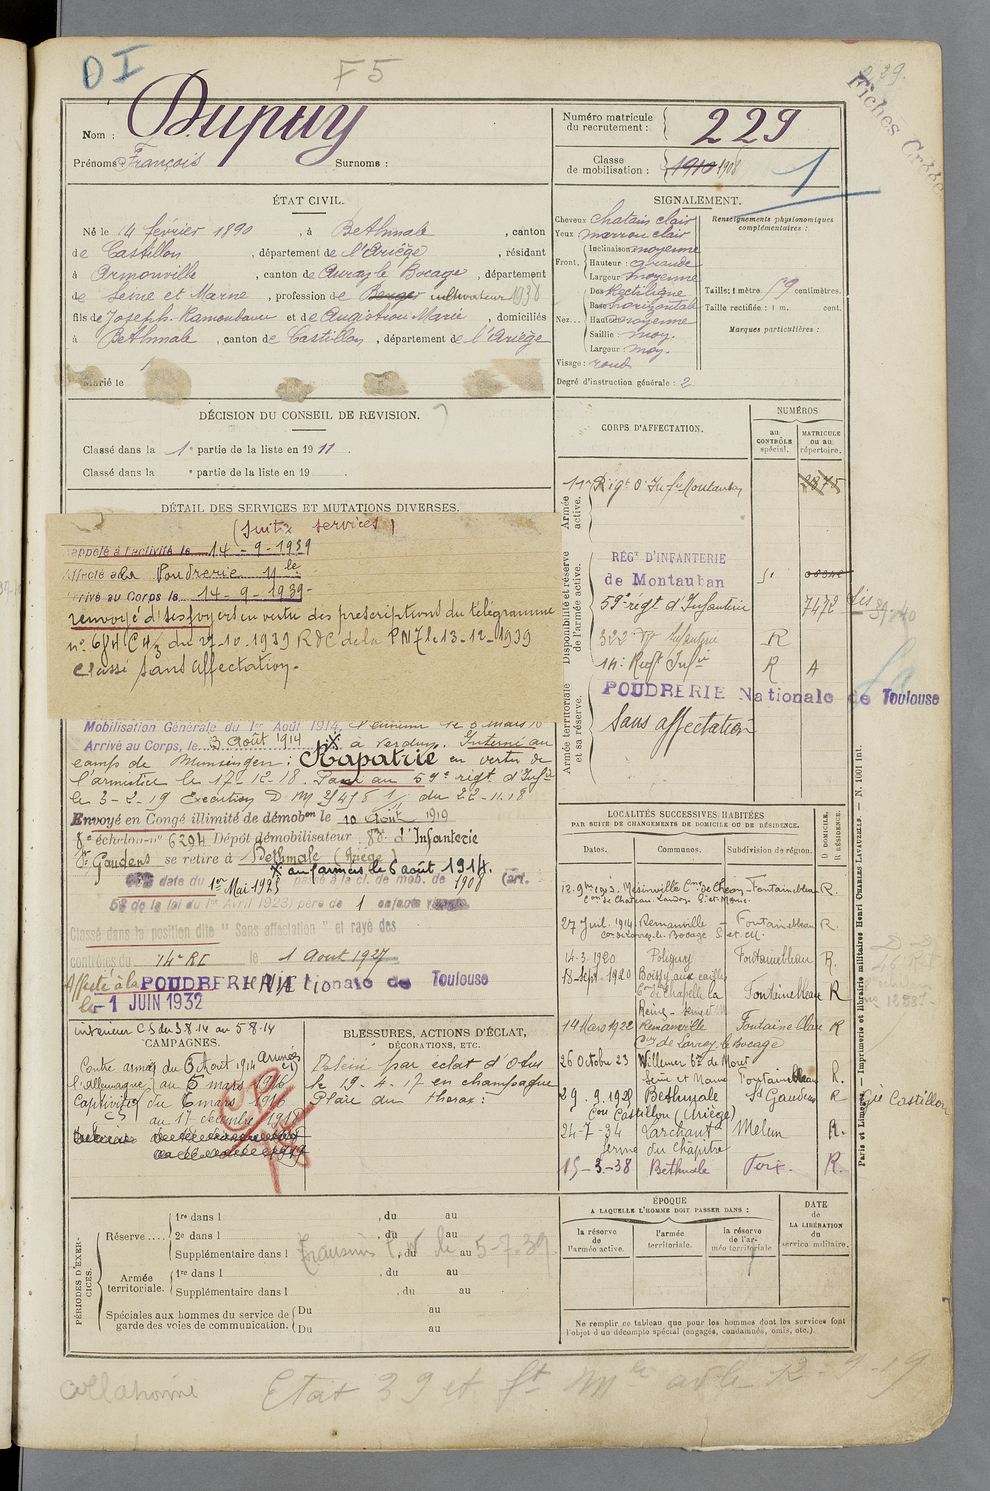 DI
F5
Fiches
Nom : Dupuy
Prénoms : François
Surnoms :
Numéro matricule du recrutement : 229
Classe de mobilisation : 1910 1908
1
ÉTAT CIVIL.
Né le 4 février 1890, à Bethmale, canton
de Castillon, département de l'Ariège, résidant
à Armonville, canton de le Bocage, département
de Seine et Marne, profession de Berger cultivateur 1938
fils de Joseph Ramonbaux et de Marie, domiciliés
à Bethmale, canton de Castillon, département de l'Ariège
Marié le
SIGNALEMENT.
Cheveux chatain clair
Yeux marron clair
Front. Inclinaison moyenne
Hauteur : grande
Largeur moyenne
Nez... Dos Rectiligne
Base horizontale
Hauteur moyenne
Saillie moy.
Largeur moy.
Visage : rond
Degré d'instruction générale : 2
Renseignements physionomiques complémentaires :
Taille : 1 mètre 59 centimètres.
Taille rectifiée : 1 m. cent.
Marques particulières :
DÉCISION DU CONSEIL DE REVISION.
Classé dans la 1e partie de la liste en 1911.
Classé dans la e partie de la liste en 19 .
DÉTAIL DES SERVICES ET MUTATIONS DIVERSES.
(Suite services)
Rappelé à l'activité le 14-9-1939
Affecté à la Poudrerie
Arrivé au Corps le 14-9-1939
renvoyé d'ses foyers en vertu des prescriptions du télégramme
du 27.10.1939 R de la 13-12-1939
Classé sans affectation.
Mobilisation Générale du 1er Août 1914,
Arrivé au Corps, le 3 Août 1914 X à Verdun. Interné au
camp de Munsingen : Rapatrié en vertu de
l'armistice le 17-12-18. Passé au 59e régt d'Infie
le 3-2-19 Exécution D M du 22-11-18
Envoyé en Congé illimité de démobon le 10 Août 1919
8e échelon n° 6294 Dépôt démobilisateur d'Infanterie
St Gaudens se retire à Bethmale (Ariège)
X aux armées le 6 août 1914.
date du 1er Mai 1923 passé à la cl. de mob. de 1908 (art.
58 de la loi du 1er Avril 1923) père de 1 enfants vivants
Classé dans la position dite "Sans affectation" et rayé des
contrôles du 14e RI le 1 Aout 1927
Affecté à la POUDRERIE Nationale de Toulouse
le -1 JUIN 1932
CORPS D'AFFECTATION.
NUMÉROS
au CONTRÔLE spécial.
MATRICULE ou au répertoire.
Armée active.
11e Régt d'Infie Montauban
2875
Disponibilité et réserve de l'armée active.
RÉGT D'INFANTERIE
de Montauban
59e régt d'Infanterie 7472
322 Infanterie R
14e Regt Infie R A
Armée territoriale et sa réserve.
POUDRERIE Nationale de Toulouse
Sans affectation
LOCALITÉS SUCCESSIVES HABITÉES
PAR SUITE DE CHANGEMENTS DE DOMICILE OU DE RÉSIDENCE.
Dates. Communes. Subdivision de région. D DOMICILE, R RÉSIDENCE.
Fontainebleau R.
27 Juil. 1914 Remauville Fontainebleau R.
14-3-1920 Poligny Fontainebleau R.
18-Sept-1920 Boissy aux cailles
Con de Chapelle la Reine - Seine et M Fontainebleau R
14 Mars 1922 Remauville Fontainebleau R
Con de Lorrez le Bocage
26 Octobre 23 Villemer Con de Moret
Seine et Marne Fontainebleau R.
29.9.1928 Bethmale St Gaudens R
Con Castillon (Ariège)
24-7-34 Larchant Melun R.
ferme du Chapitre
15-3-38 Bethmale Foix. R.
gie Castillon
intérieur CS du 3 8 14 au 5 8 14
CAMPAGNES.
Contre armées du 6 Août 1914
l'Allemagne au 5 mars 1916
Captivité du 6 mars 1916
au 17 décembre 1918
BLESSURES, ACTIONS D'ÉCLAT,
DÉCORATIONS, ETC.
Blessé par éclat d'obus
le 19-4-17 en champagne
Plaie du thorax :
PÉRIODES D'EXERCICES.
Réserve.... 1re dans l , du au
2e dans l , du au
Supplémentaire dans l , du au
Armée territoriale. 1re dans l , du au
Supplémentaire dans l , du au
Spéciales aux hommes du service de garde des voies de communication. Du au
Du au
le 5-7-39
ÉPOQUE
A LAQUELLE L'HOMME DOIT PASSER DANS :
la réserve de l'armée active.
l'armée territoriale.
la réserve de l'armée territoriale
DATE de LA LIBÉRATION du service militaire.
Ne remplir ce tableau que pour les hommes dont les services font
l'objet d'un décompte spécial (engagés, condamnés, omis, etc.).
Paris et Limoges. — Imprimerie et librairie militaires Henri CHARLES-LAVAUZELLE. — N. 1001 int.
Etat 39 et